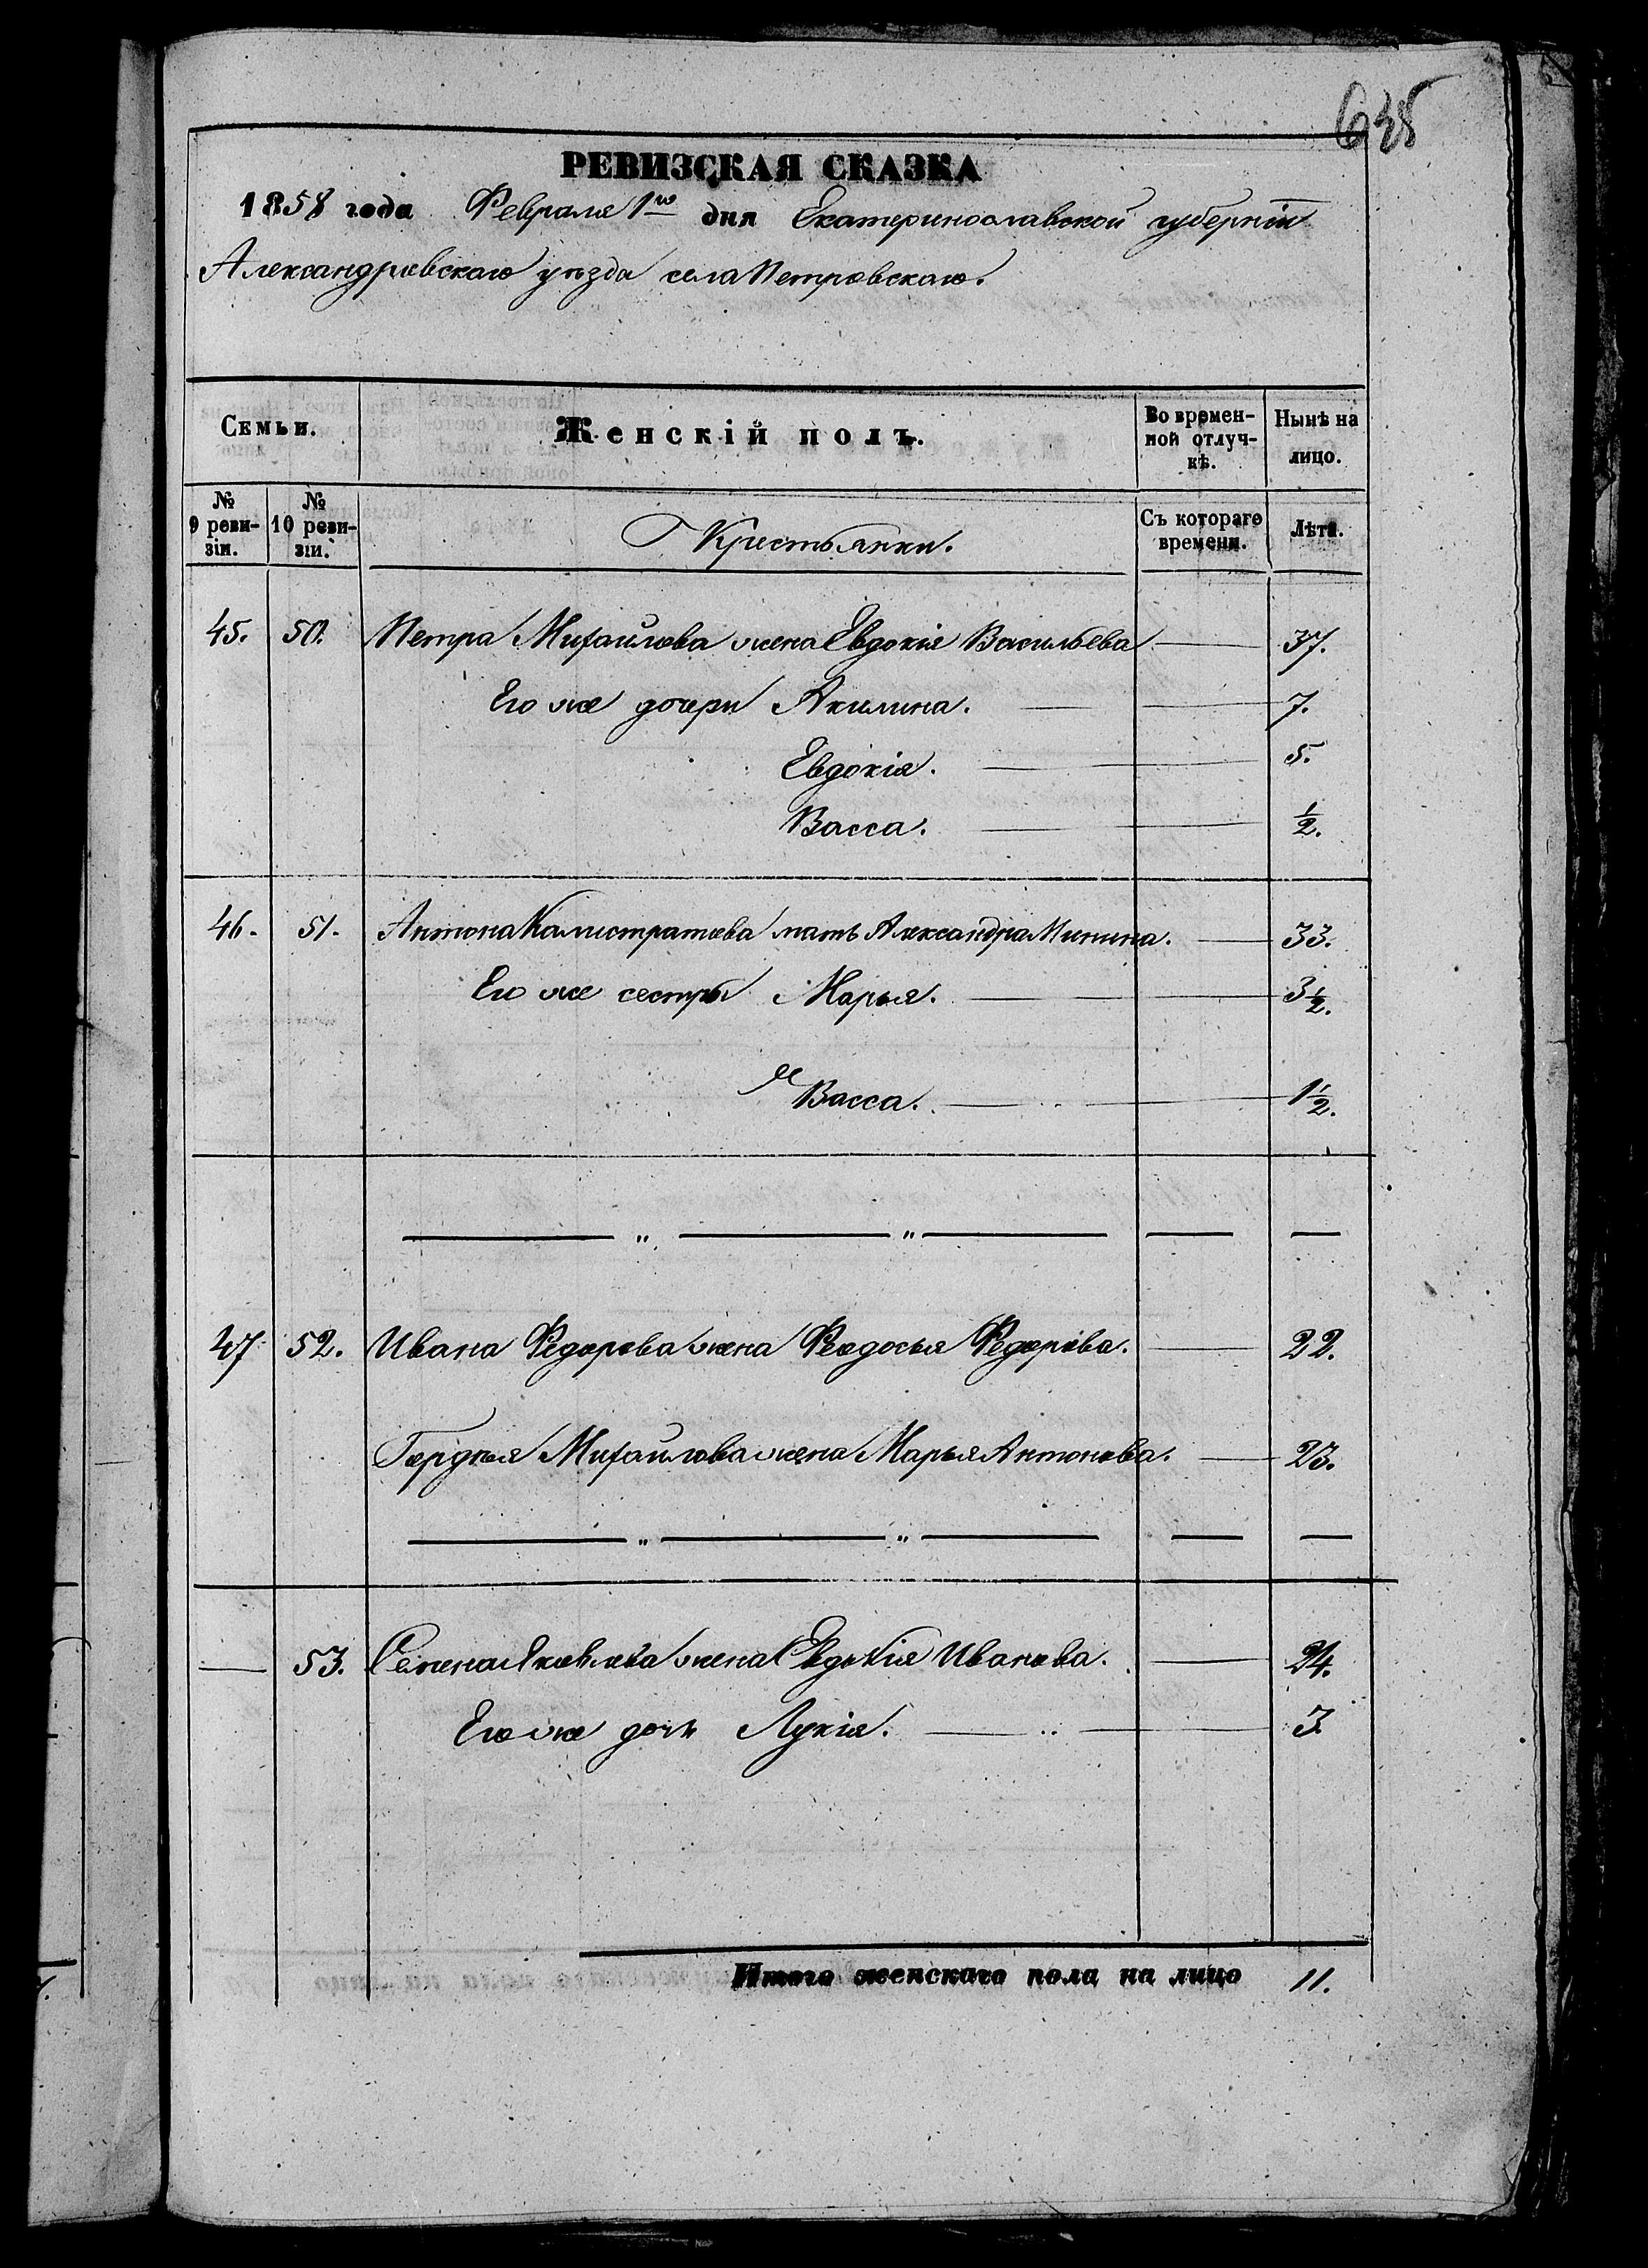 638
РЕВИЗСКАЯ СКАЗКА
1858 года Февраля 1го дня Екатеринославской губерніи
Александровскаго уѣзда села Петровскаго.
Семьи. Женскій полъ. Во временной отлучкѣ. Нынѣ на лицо.
№ 9 ревизіи. № 10 ревизіи. Крестьянки. Съ котораго времени. Лѣта.
45. 50. Петра Михайлова жена Евдокія Васильева 37.
Его же дочери Акилина. 7.
Евдокія. 5.
Васса. ½.
46. 51. Антона Калистратова мать Александра Минина. 33.
Его же сестры Марья. 3½.
и Васса. 1½.
47 52. Ивана Федорова жена Феодосья Федорова. 22.
Гордея Михайлова жена Марья Антонова. 23.
53. Семена Яковлева жена Евдокія Иванова. 24.
Его же дочь Лукія. 3.
Итого женскаго пола на лицо 11.